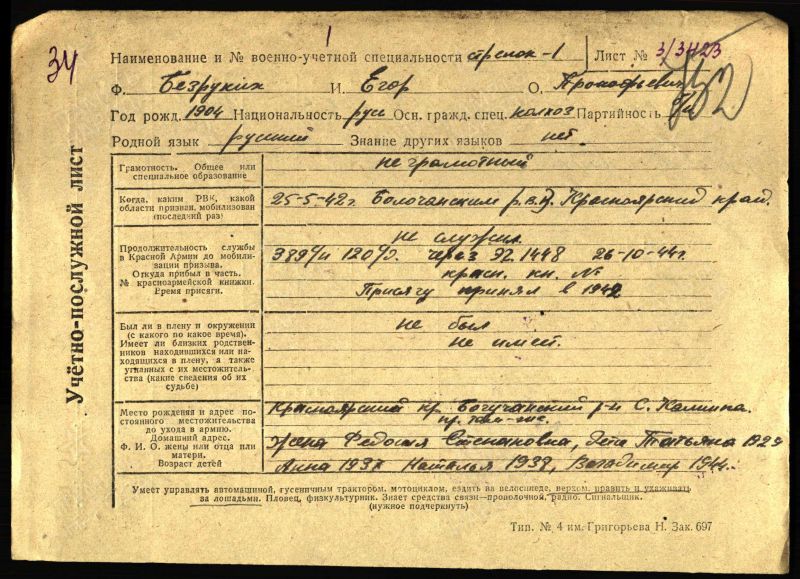 34
Наименование и № военно-учетной специальности стрелок-1 Лист № 3/3423
Ф. Безруких И. Егор О. Прокофьевич
Год рожд. 1904 Национальность рус Осн. гражд. спец. колхоз Партийность б/п
Родной язык русский Знание других языков нет
Учётно-послужной лист
Грамотность. Общее или
специальное образование
неграмотный
Когда, каким РВК, какой
области призван, мобилизован
(последний раз)
25-5-42г. Красноярский край.
Продолжительность службы
в Красной Армии до мобили-
зации призыва.
Откуда прибыл в часть.
№ красноармейской книжки.
Время присяги.
не служил
389 120 через ЭГ 1448 26-10-44г.
красн. кн. №
Присягу принял в 1942
Был ли в плену и окружении
(с какого по какое время).
Имеет ли близких родствен-
ников находившихся или на-
ходящихся в плену, а также
угнанных с их местожитель-
ства (какие сведения об их
судьбе)
не был
не имеет.
Место рождения и адрес по-
стоянного местожительства
до ухода в армию.
Домашний адрес.
Ф. И. О. жены или отца или
матери.
Возраст детей
Красноярский кр. Богучанский р-н С. Кашина.
Жена Федосия Степановна, дети Татьяна 1929
Анна 1937 Наталья 1939, Владимир 1944.
Умеет управлять автомашиной, гусеничным трактором, мотоциклом, ездить на велосипеде, верхом, править и ухаживать
за лошадьми. Пловец, физкультурник. Знает средства связи—проволочной, радио. Сигнальщик.
(нужное подчеркнуть)
Тип. № 4 им. Григорьева Н. Зак. 697